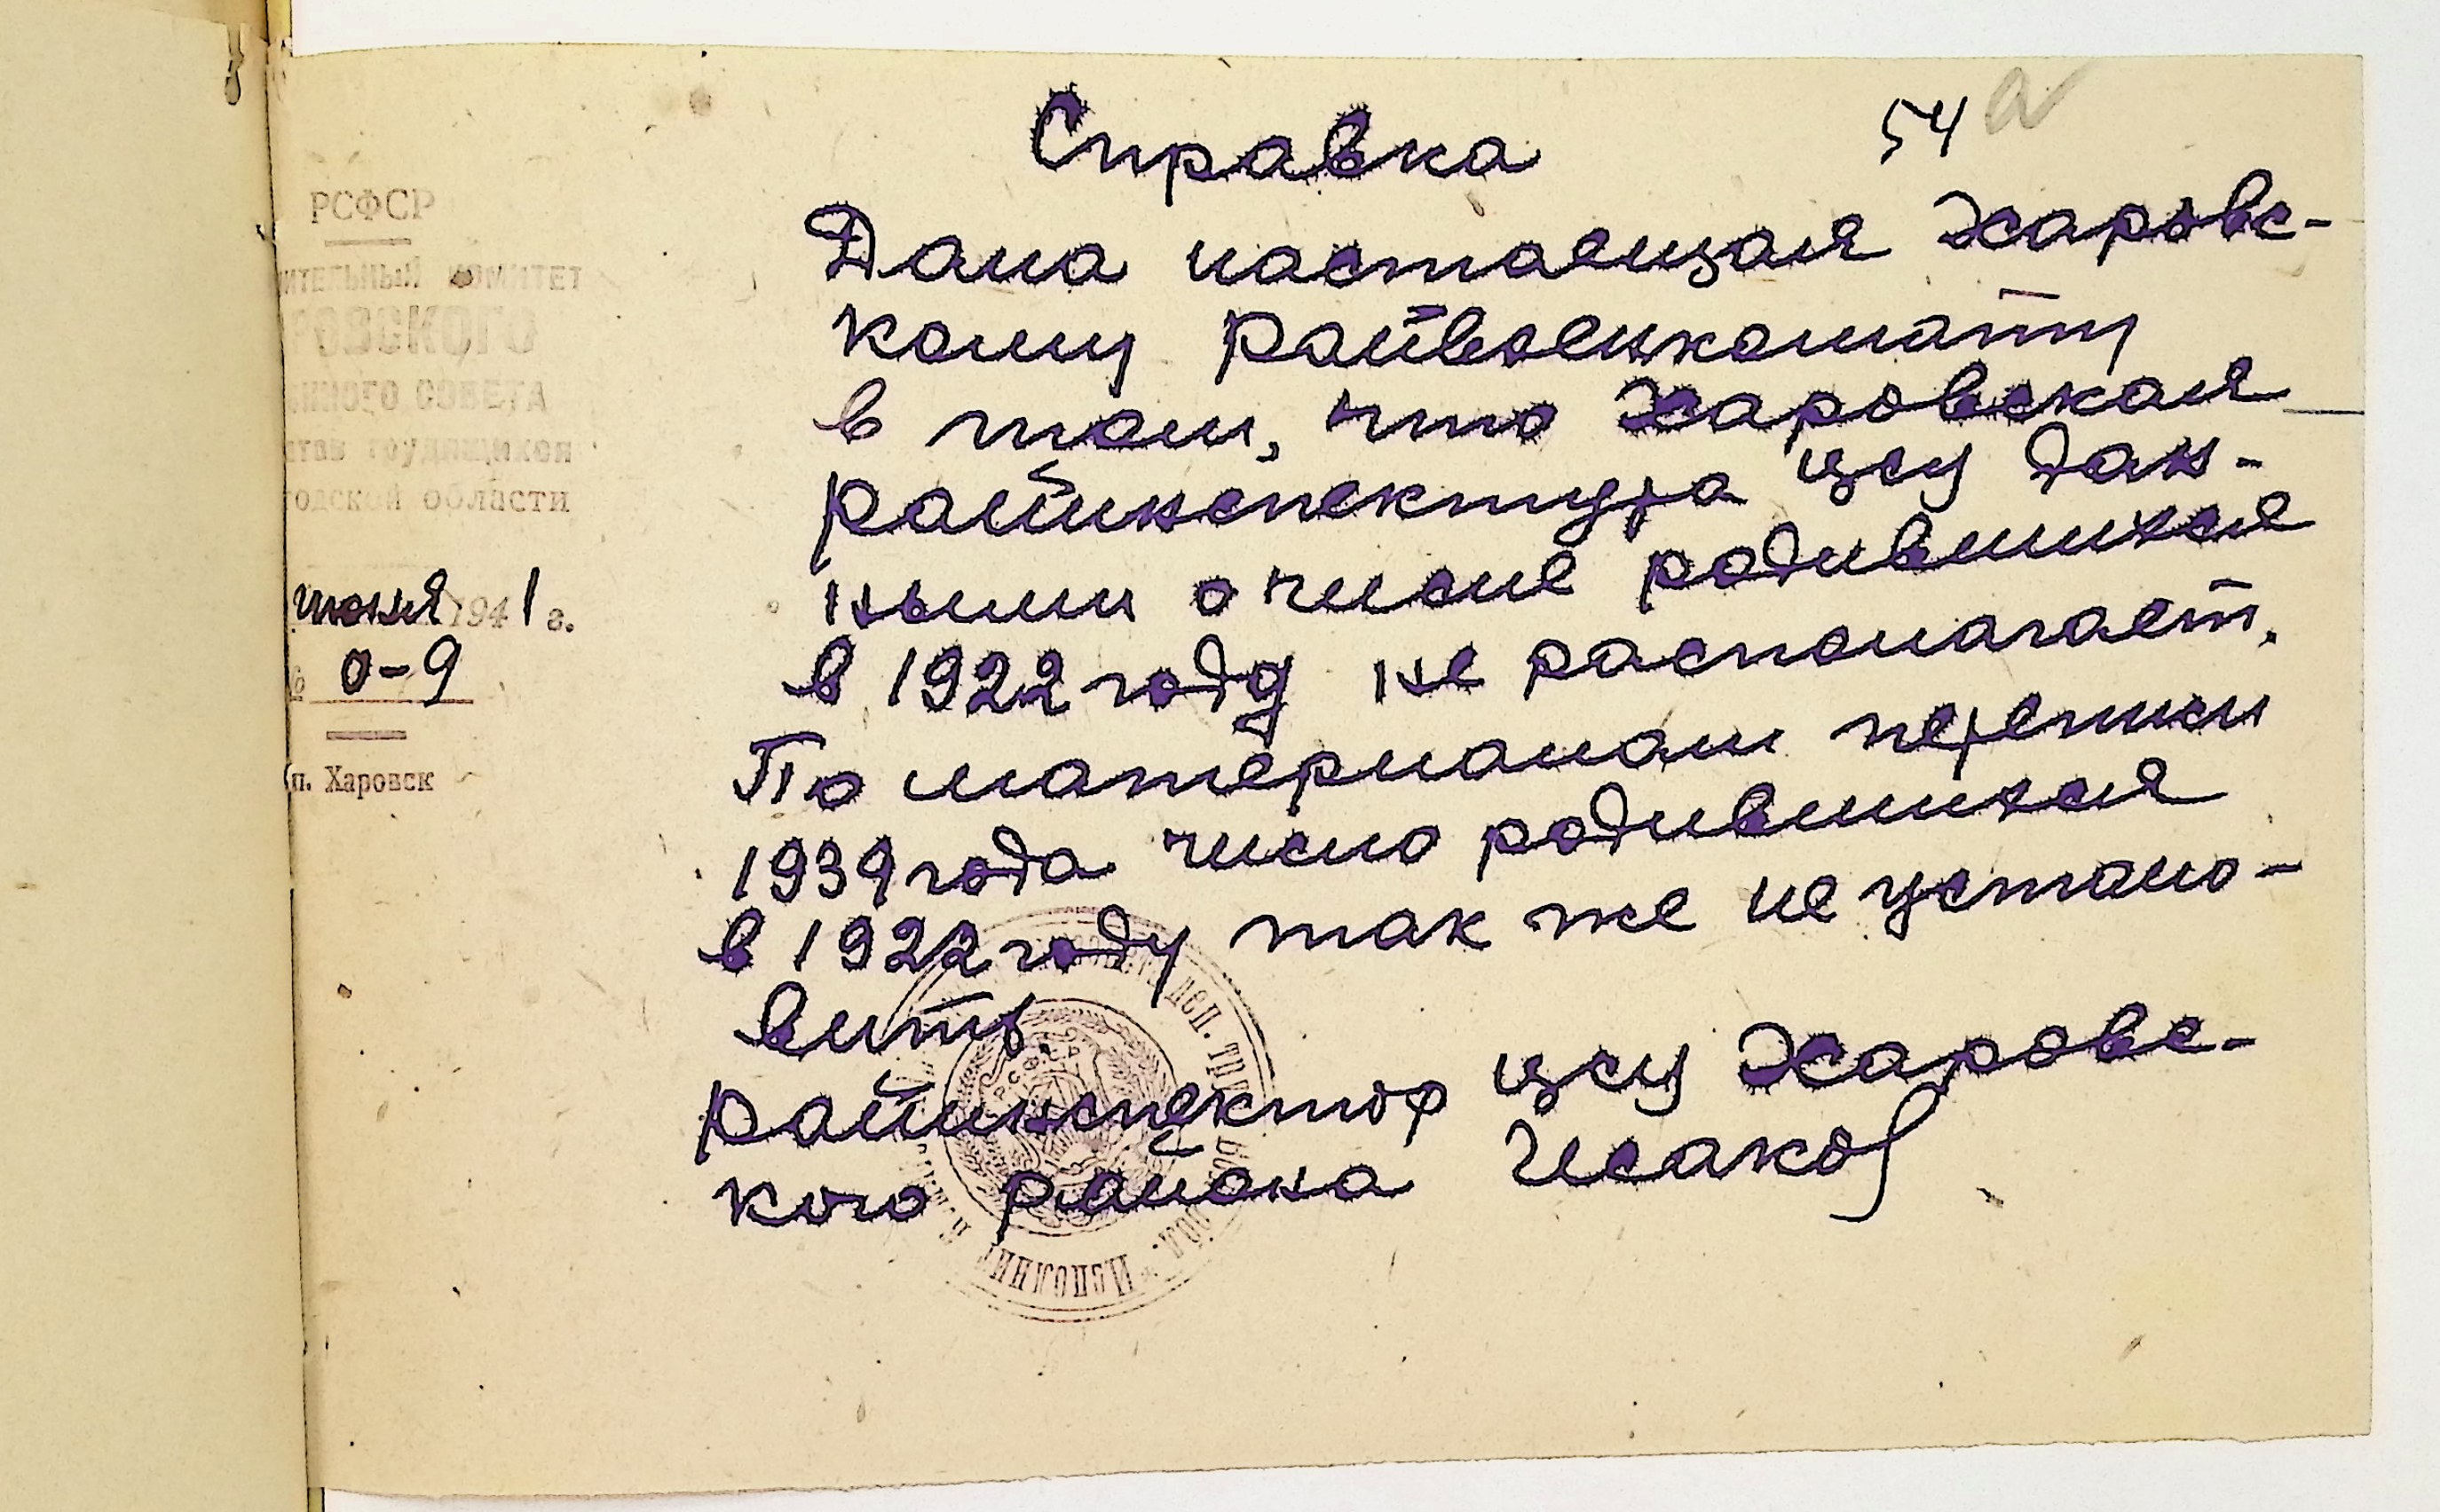 54 а
РСФСР
ительный комитет
ровского
нного совета
атов трудящихся
годской области
июня 1941 г.
№ 0-9
п. Харовск
Справка
Дана настоящая Харовс-
кому райвоенкомату
в том, что Харовская
райинспектура цсу дан-
ными о числе родившихся
в 1922 году не располагает.
По материалам переписи
1939 года число родившихся
в 1922 году так же не устано-
вить.
райинспектор цсу Харовс-
кого района Исаков
РСФСР
Исполнит